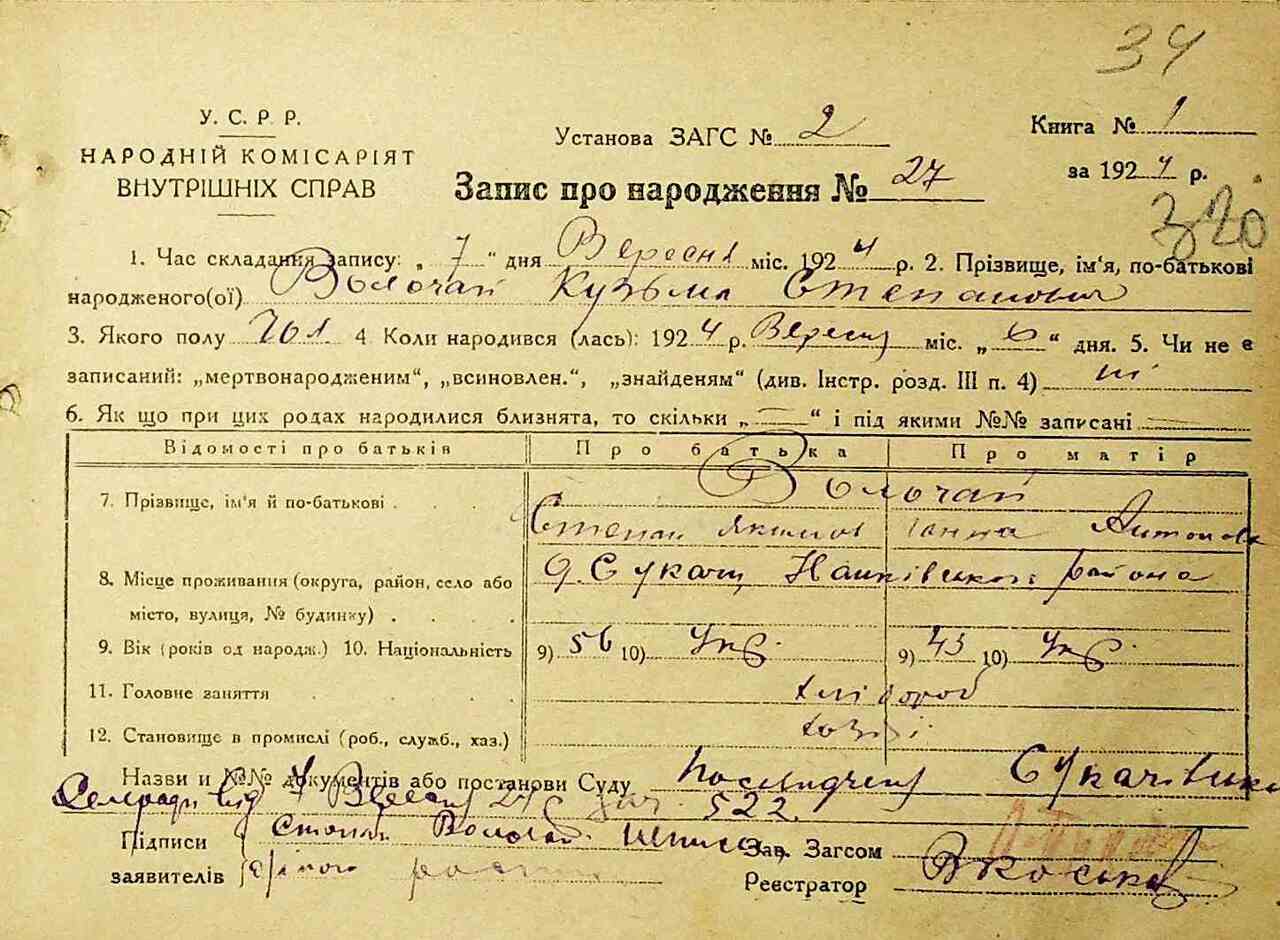 34
У. С. Р. Р.
НАРОДНІЙ КОМІСАРІЯТ
ВНУТРІШНІХ СПРАВ
Установа ЗАГС № 2
Книга № 1
за 1924 р.
Запис про народження № 27
320
1. Час складання запису: „ 7 “ дня Вересня міс. 1924 р. 2. Прізвище, ім'я, по-батькові
народженого(ої) Волочай Кузьма Степанович
3. Якого полу Чол. 4 Коли народився (лась): 1924 р. Вересня міс. „ 6 “ дня. 5. Чи не є
записаний: „мертвонародженим“, „всиновлен.“, „знайденям“ (див. Інстр. розд. III п. 4) ні
6. Як що при цих родах народилися близнята, то скільки „ — “ і під якими №№ записані —
Відомості про батьків Про батька Про матір
7. Прізвище, ім'я й по-батькові Волочай
Степан Якимов Ганна Антонова
8. Місце проживання (округа, район, село або
місто, вулиця, № будинку) с. Сукачі району
9. Вік (років од народж.) 10. Національність 9) 56 10) Укр. 9) 43 10) Укр.
11. Головне заняття хлібороб
12. Становище в промислі (роб., служб., хаз.)
Назви и №№ документів або постанови Суду Посвідчення
Сельради від 7 Вересня 24 р. за № 522.
Підписи Степан Волочай
заявителів
Зав. Загсом
Реєстратор